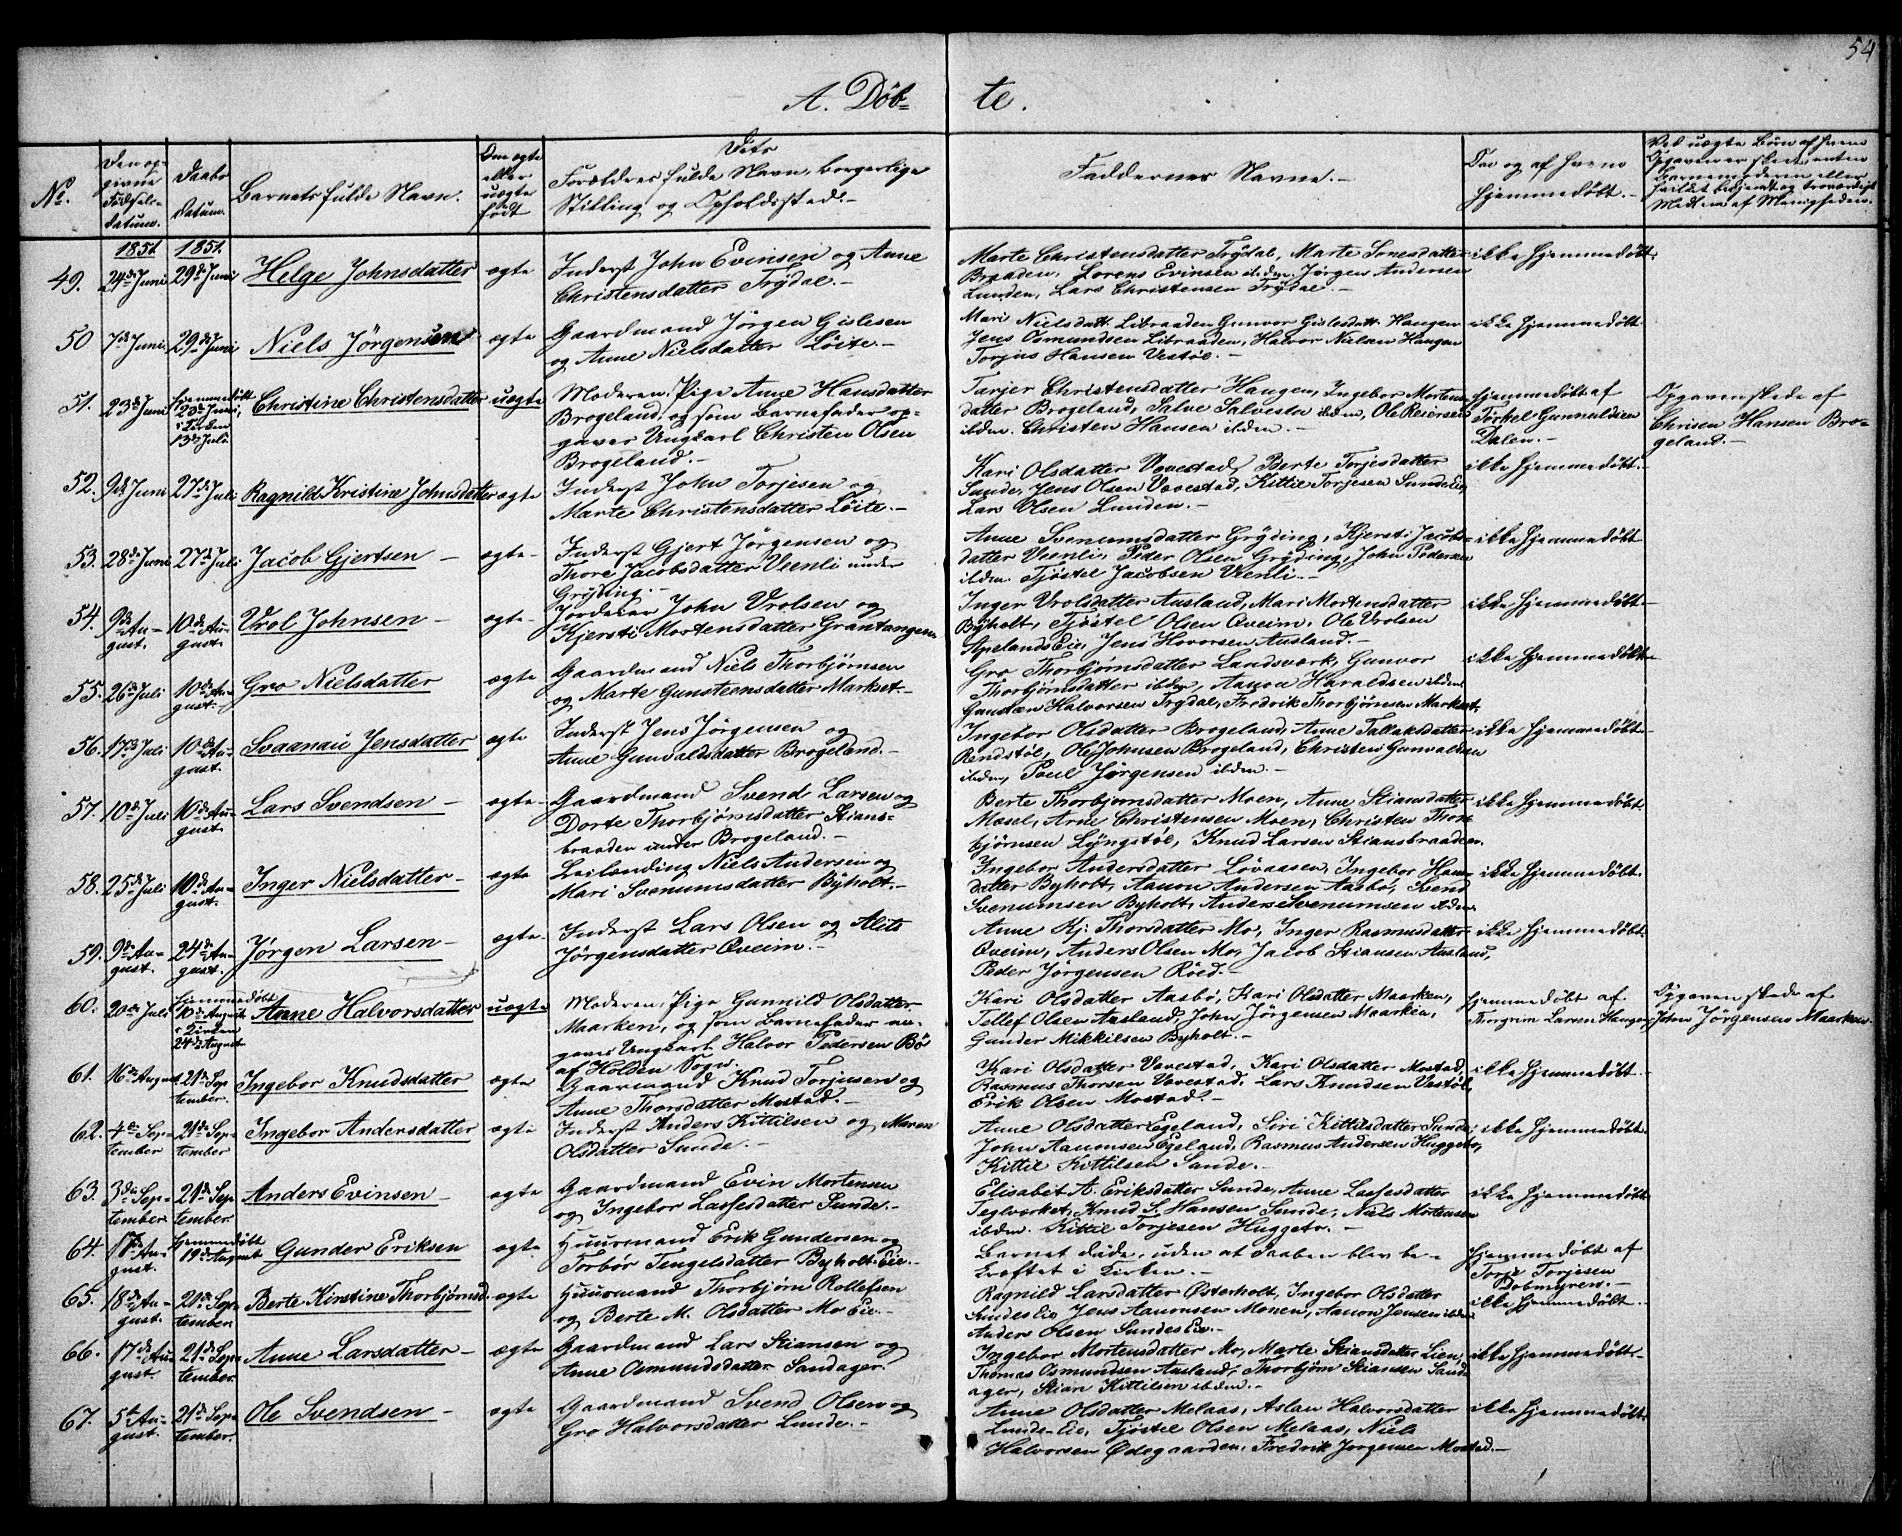 54
A. Døb- te.
No.
Den op-
givne
Fødsels-
datum.
Daabs
datum.
Barnets fulde Navn.
Om ægte
eller
uægte
født
Dets
Forældres fulde Navn, borgerlige
Stilling og Opholdssted.-
Faddernes Navne.-
Om og af hvem
hjemmedøbt.-
Ved uægte Børn af hvem
Opgaven er skeet, enten
Barnemoderen eller
Medlem af Menigheden.
1851. 1851.
49. 24de Juni 29de Juni Helge Johnsdatter ægte
Inderst John Evinsen og Anne
Christensdatter Frydal.-
Marte Christensdatter Frydal, Marte Irnesdatter
Braaden, Lorens Evinsen ibdm. Jørgen Andersen
Lunden, Lars Christensen Frydal.-
ikke hjemmedøbt.
50 7de Juni. 29de Juni Niels Jörgensen ægte
Gaardmand Jørgen Gislesen
og Anne Nielsdatter Løite.-
Mari Nielsdatt. Libraaden, Gunvor Gislesdatt. Haugen
Jens Osmundsen Libraaden, Halvor Nielsen Haugen
Torjus Hansen Vestøl.-
ikke hjemmedøbt.
51. 23de Juni hjemmedøbt
23de Juni,
i Kirken
13de Juli
Christine Christensdatter uægte
Moderen, Pige Anne Hansdatter
Brogeland, og som Barnefader op-
gaves Ungkarl Christen Olsen
Brogeland.-
Tarjer Christensdatter Haugen, Ingebor Mortens-
datter Brogeland, Salve Salvesen ibdm, Ole Reiersen
ibdm. Christen Hansen ibdm.-
hjemmedøbt af
Torkel Gunnuldsen
Dalen.-
Opgaven skede af
Chrisen Hansen Bro-
geland.-
52. 9de Juni 27de Juli Ragnild Kristine Johnsdatter ægte
Inderst John Torjesen og
Marte Christensdatter Løite.-
Kari Olsdatter Vovestad, Berte Torjesdatter
Sunde, Jens Olsen Vovestad, Kittil Torjesen Sunde Eie,
Lars Olsen Lunden.-
ikke hjemmedøbt.-
53. 28de Juni 27de Juli Jacob Gjertsen - ægte-
Inderst Gjert Jørgensen og
Thore Jacobsdatter Veenli under
Gryting.-
Anne Svenumsdatter Gryding, Kjersti Jacobs-
datter Veenli, Peder Olsen Gryding, John Pedersen
ibdm. Tjöstel Jacobsen Veenli.-
ikke hjemmedøbt
54. 9de Au-
gust. 10de Au-
gust. Vrol Johnsen - ægte-
Jordeier John Vrolsen og
Kjersti Mortensdatter Grantangen
Inger Vrolsdatter Ausland, Mari Mortensdatter
Byholt, Tjöstel Olsen Qveim, Ole Vrolsen
Apelands Eie, Jens Hovorsen Ausland.-
ikke hjemmedøbt.-
55. 26de Juli 10de Au-
gust. Gro Nielsdatter ægte
Gaardmand Niels Thorbjørnsen
og Marte Gunsteensdatter Markset-
Gro Thorbjørnsdatter Landsværk, Gunvor
Thorbjørnsdatter ibdm, Aanon Haraldsen ibdm.
Gunsteen Halvorsen Frydal, Fredrik Thorbjørnsen Markset.
ikke hjemmedøbt.-
56. 17de Juli 10de Au-
gust. Svaanau Jensdatter ægte
Inderst Jens Jørgensen og
Anne Gunvaldsdatter Brogeland.-
Ingebor Olsdatter Brogeland, Anne Tallaksdatter
Rendstøl, Ole Johnsen Brogeland, Christen Gunvaldsen
ibdm, Poul Jørgensen ibdm.-
ikke hjemmedøbt.-
57. 10de Juli 10de Au-
gust. Lars Svendsen - ægte-
Gaardmand Svend Larsen og
Dorte Thorbjørnsdatter Stians-
braaden under Brogeland.-
Berte Thorbjornsdatter Moen, Anne Stiansdatter
Mosel, Arne Christensen Moen, Christen Thor-
bjørnsen Lyngstøl, Knud Larsen Stiansbraaden.
ikke hjemmedøbt.
58. 25de Juli 10de Au-
gust. Inger Nielsdatter - ægte
Leilænding Niels Andersen og
Mari Svenumsdatter Byholt.-
Ingebor Andersdatter Lövaasen, Ingebor Hans-
datter Byholt, Aanon Andersen Aasbø, Svend
Svenumsen Byholt, Anders Svenumsen ibdm.
ikke hjemmedøbt.
59. 9de Au-
gust. 24de Au-
gust. Jörgen Larsen - ægte-
Inderst Lars Olsen og Alits
Jørgensdatter Qveim.-
Anne Kj: Thorsdatter Mo, Inger Rasmusdatter
Qveim, Anders Olsen Mo, Jacob Stiansen Ausland,
Peder Jørgensen Röed.-
ikke hjemmedøbt.
60. 20de Juli hjemmedøbt
10de August
i Kirken
24de August
Anne Halvorsdatter uægte
Moderen, Pige Gunnild Olsdatter
Maarken, og som Barnefader an-
gaves Ungkarl Halvor Pedersen Bø
af Holden Sogn.
Kari Olsdatter Aasbø, Kari Olsdatter Maarken,
Tellef Olsen Ausland, John Jörgensen Maarken,
Gunder Mikkilsen Byholt.-
hjemmedøbt af
Thorgrim Larsen Haugen
Opgaven skede af
John Jørgensen Maarken.
61. 16de August 21de Sep-
tember. Ingebor Knudsdatter ægte
Gaarmand Knud Torjusen og
Anne Thorsdatter Mostad.-
Kari Olsdatter Vovestad, Kari Olsdatter Mostad,
Rasmus Thorsen Vovestad, Lars Knudsen Vestøl,
Erik Olsen Mostad.-
ikke hjemmedøbt.-
62. 4de Sep-
tember 21de Sep-
tember Ingebor Andersdatter ægte
Inderst Anders Kittilsen og Maren
Olsdatter Sunde.-
Anne Olsdatter Egeland, Siri Kittilsdatter Sunde,
John Aanonsen Egeland, Rasmus Andersen Huggeto,
Kittil Kittilsen Sunde.-
ikke hjemmedøbt.
63. 3die Sep-
tember 21de Sep-
tember Anders Evinsen - ægte
Gaardmand Evin Mortensen
og Ingebor Lassesdatter Sunde.-
Elisabet A. Eriksdatter Sunde, Anne Lassesdatter
Teglværket, Knud S. Hansen Sunde, Niels Mortensen
ibdm. Kittil Torjesen Huggeto.-
ikke hjemmedøbt.
64. 17de Au-
gust. hjemmedøbt
19de August Gunder Eriksen ægte
Huusmand Erik Gundersen og
Torbør Tengelsdatter Byholt Eie.-
Barnet døde, uden at Daaben blev be-
kræftet i Kirken.-
hjemmedøbt af
Torje Torjesen
Dobmyren.-
65. 18de Au-
gust. 21de Sep-
tember Berte Kirstine Thorbjørnsd. ægte
Huusmand Thorbjørn Rollefsen
og Berte M. Olsdatter Mo Eie.
Ragnild Larsdatter Østerholt, Ingebor Olsdatter
Sundes Eie, Jens Aanonsen Monen, Aanon Jensen ibdm
Anders Olsen Sundes Eie.-
ikke hjemmedøbt.-
66. 17de Au-
gust 21de Sep-
tember. Anne Larsdatter - ægte
Gaardmand Lars Stiansen og
Anne Osmundsdatter Sandager.
Ingebor Mortensdatter Mo, Marte Stiansdatter Lien,
Thomas Osmundsen Ausland, Thorbjørn Stiansen Sand-
ager, Stian Kittilsen ibdm.-
ikke hjemmedøbt-
67. 5te Au-
gust. 21de Sep-
tember. Ole Svendsen - ægte
Gaardmand Svend Olsen og
Gro Halvorsdatter Lunde.-
Anne Olsdatter Melaas, Aslau Halvorsdatter
Lunde-Eie, Tjöstel Olsen Melaas, Niels
Halvorsen Ødegaarden, Fredrik Jørgensen Mostad.-
ikke hjemmedøbt